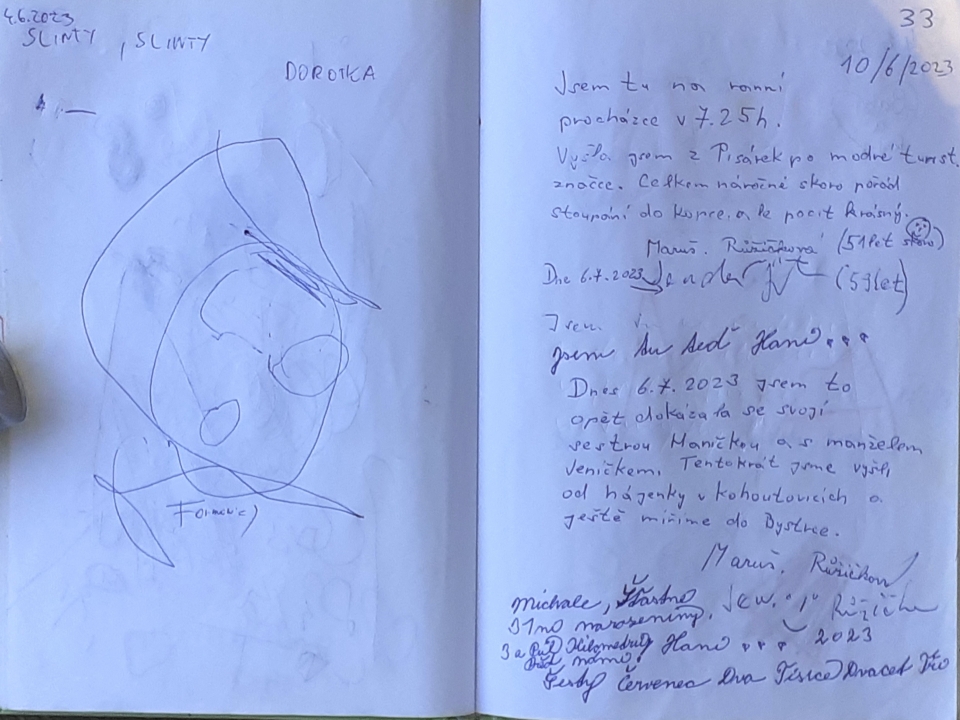 4.6.2023
SLINTY, SLINTY
DOROTKA
33
10/6/2023
Jsem tu na ranní
procházce v 7.25h.
Vyšla jsem z Pisárek po modré turist.
značce. Celkem náročné skoro pořád
stoupání do kopce, ale pocit krásný.
Maruš. Růžičková (51 let skoro)
Dne 6.7.2023 (59let)
Jsem
jsem Hanč...
Dnes 6.7.2023 jsem to
opět dokázala se svojí
sestrou Haničkou a s manželem
Jeníčkem. Tentokrát jsme vyšli
od hájenky v Kohoutovicích a
ještě míříme do Bystrce.
Maruš. Růžičkov
Růžička
2023
3 a Půl Kilometru Hanč...
Šestý Červenec Dva Tisíce Dvacet Tři